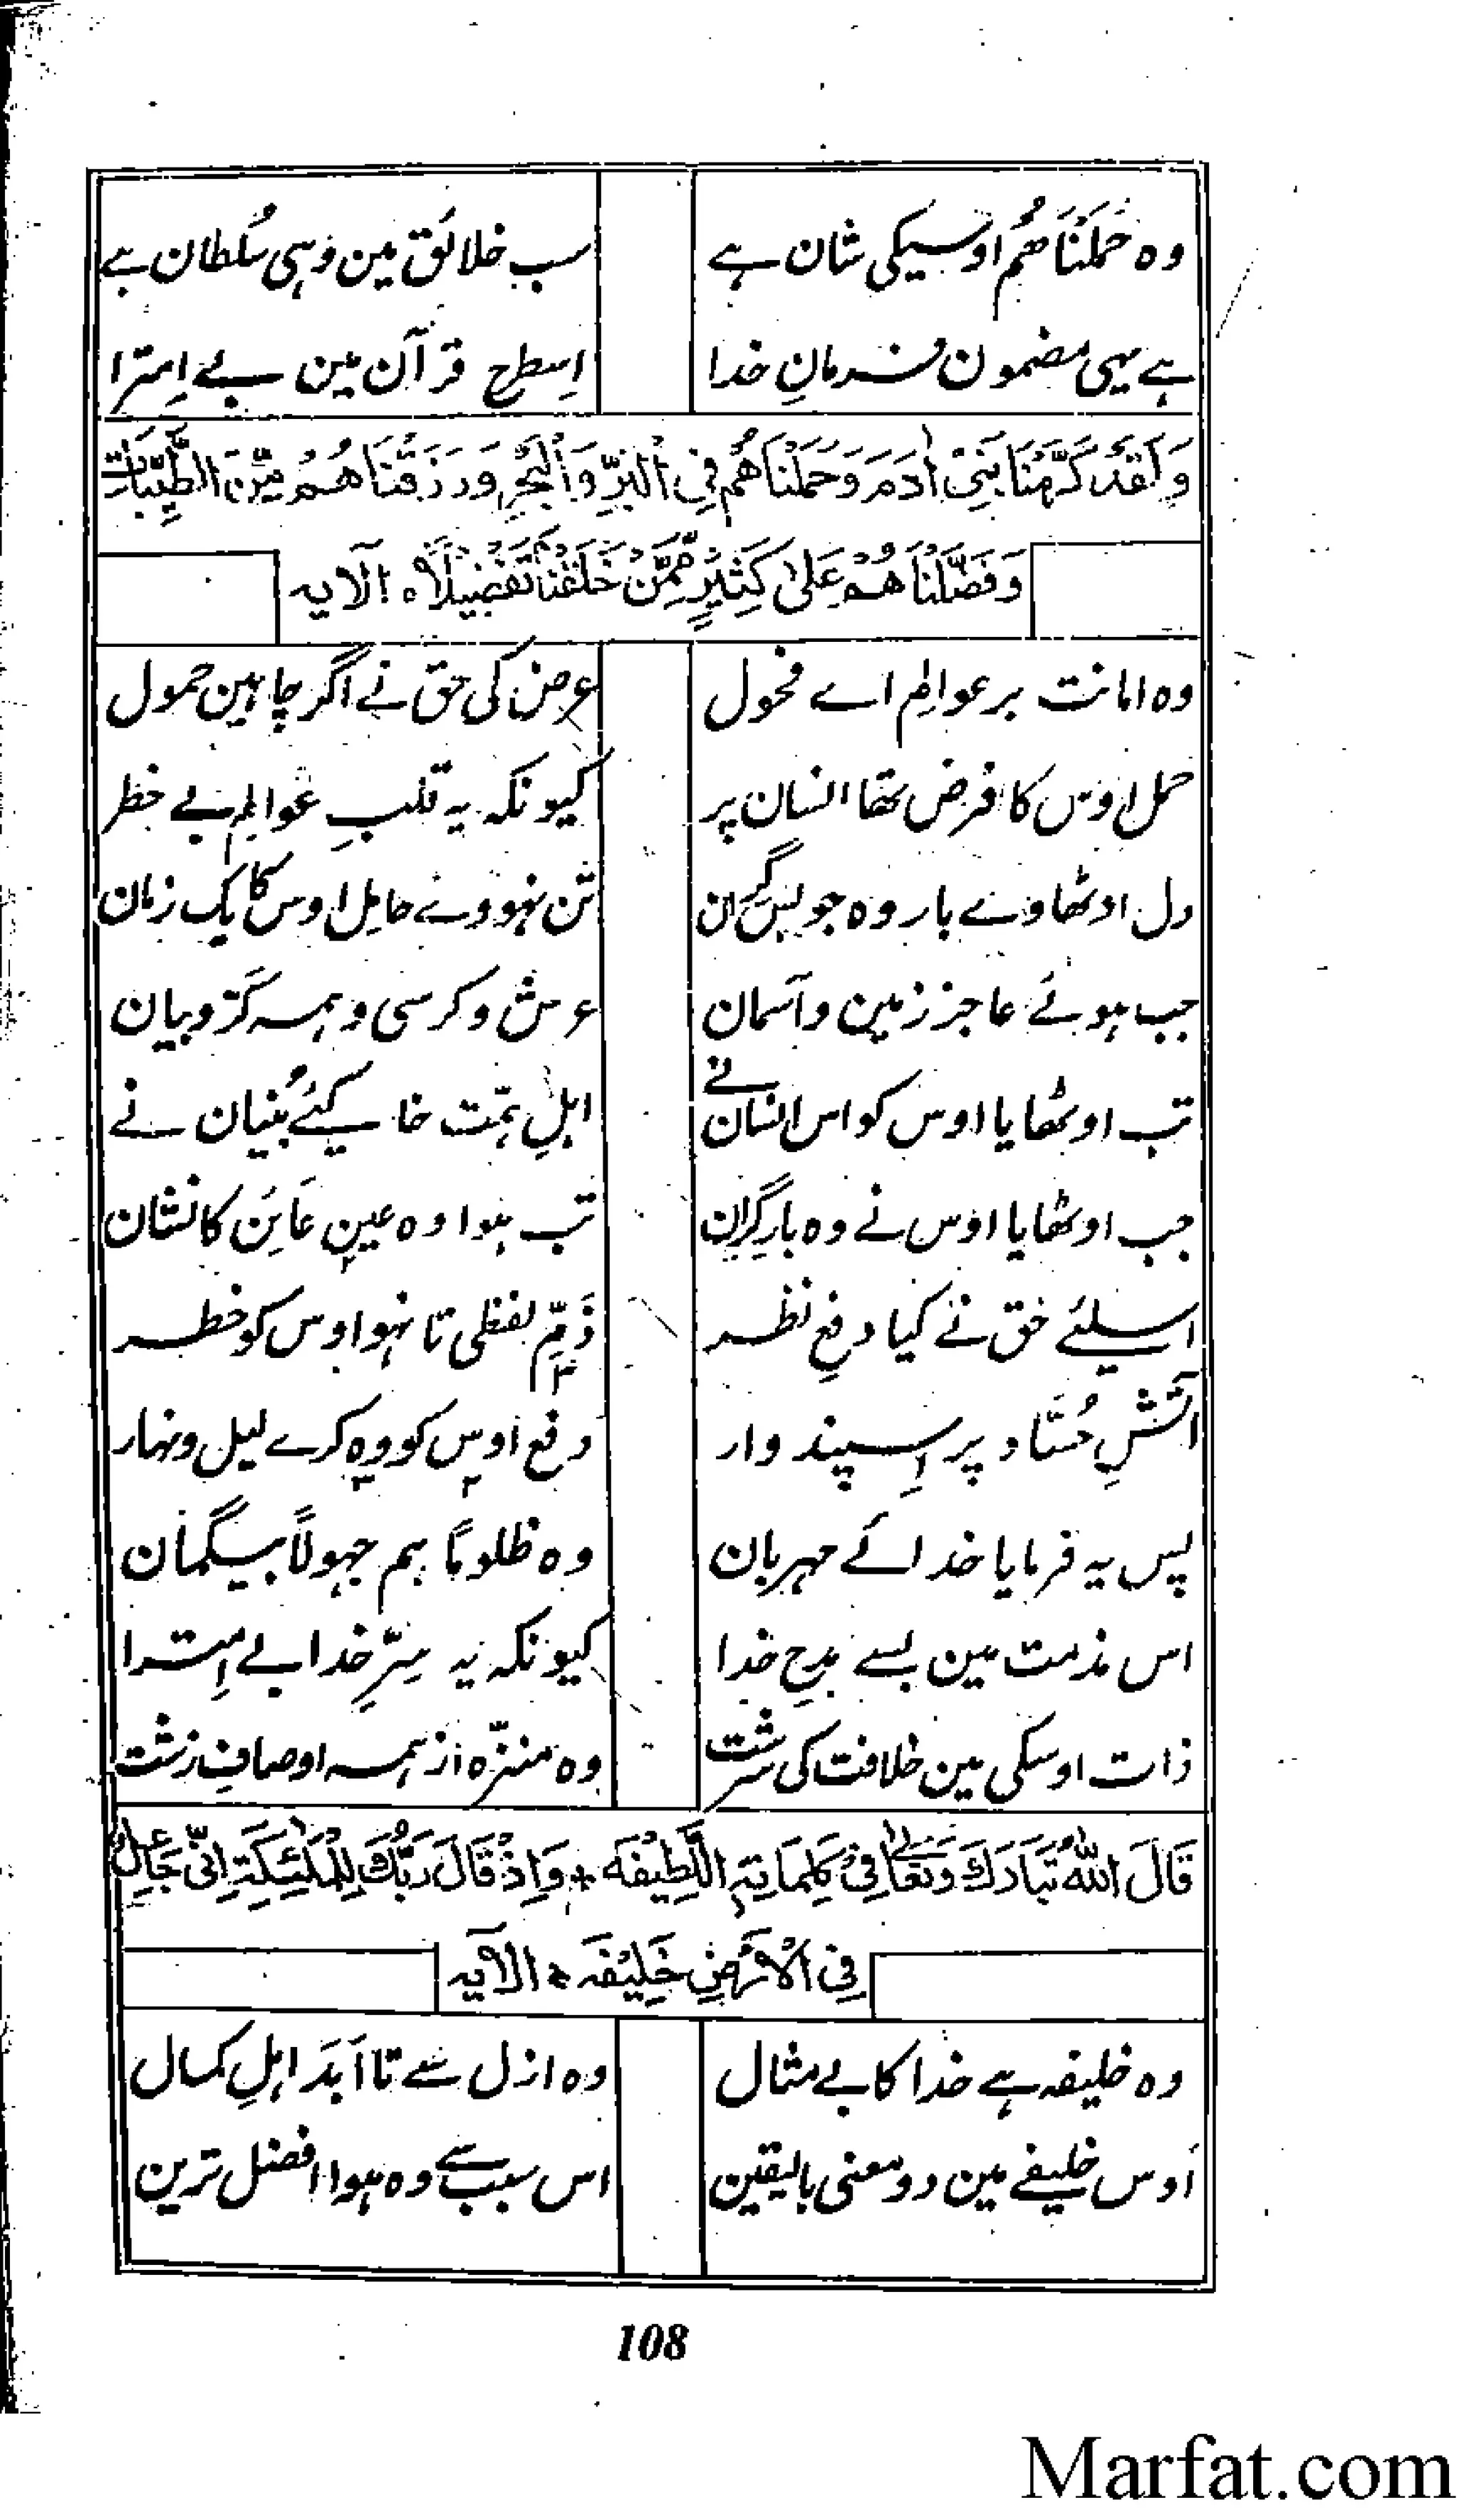 وہ حَمَلْنَاھُم اوسیکی شان ہے سب خلائق مین وہی سُلطان ہے
ہے یہی مضمون فرمانِ خدا اِسطرح قرآن مین بے اِمترا
وَلَقَدْ كَرَّمْنَا بَنِيْ اٰدَمَ وَحَمَلْنَاهُمْ فِي الْبَرِّ وَالْبَحْرِ وَرَزَقْنَاهُمْ مِّنَ الطَّيِّبَاتِ
وَفَضَّلْنَاهُمْ عَلٰى كَثِيْرٍ مِّمَّنْ خَلَقْنَا تَفْضِيْلًا ٥ الآیہ
وہ امانت بر عوالم اے فحول عرض کی حق نے اگر چاہین حمول
حمل اوس کا فرض تھا انسان پر کیونکہ یہ قلبِ عوالم بے خطر
دل اوٹھاوے بار وہ جو بس گران تن نہووے حامل اوس کا یک زمان
جب ہوئے عاجز زمین و آسمان عرش و کرسی و ہمہ کرّوبیان
تب اوٹھایا اوس کو اس انسان نے اہلِ ہمّت خاکیئے بُنیان نے
جب اوٹھایا اوس نے وہ بارِ گران تب ہوا وہ عینِ عَایَن کا نشان
اسلئے حق نے کیا دفعِ نظر ذَمِّ لفظی تا نہو اوس کو خطر
آتشِ حُسَّاد پر اِسپند وار دفع اوس کو وہ کرے لیل و نہار
پس یہ فرمایا خدائے مہربان وہ ظلوماً ہم جہولاً بیگمان
اس مذمت مین ہے مدحِ خدا کیونکہ یہ سِرِّ خدا بے اِمترا
ذات اوسکی مین خلافت کی سرشت وہ منزّہ از ہمہ اوصافِ زشت
قَالَ اللّٰهُ تَبَارَكَ وَتَعَالٰى فِيْ كَلِمَاتِهِ اللَّطِيْفَه * وَاِذْ قَالَ رَبُّكَ لِلْمَلٰئِكَةِ اِنِّيْ جَاعِلٌ
فِي الْاَرْضِ خَلِيْفَه ٥ الآیہ
وہ خلیفہ ہے خدا کا بے مثال وہ ازل سے تا اَبَد اہلِ کمال
اوس خلیفے مین دو معنی بالیقین اس سبب سے وہ ہوا افضل ترین
108
Marfat.com